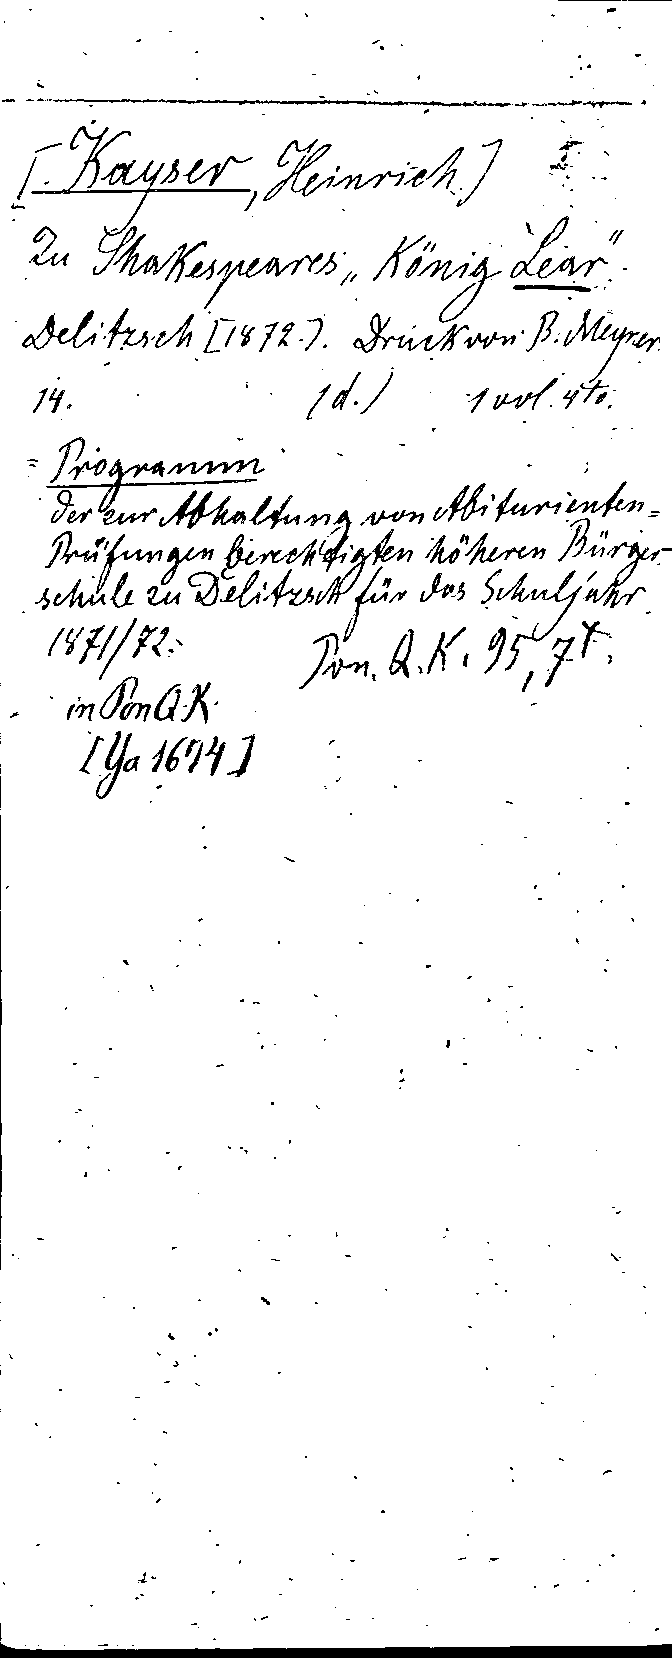 [Kayser, Heinrich]
Zu Shakespeares „König Lear".
Delitzsch [1872]. Druck von B. Meyner.
14. (d.) 1 vol. 4to.
= Programm
der zur Abhaltung von Abiturienten=
Prüfungen berechtigten höheren Bürger
schule zu Delitzsch für das Schuljahr
1871/72.
Pon. Q. K. 95, 7
in Pon Q.K.
[Ya 1674]